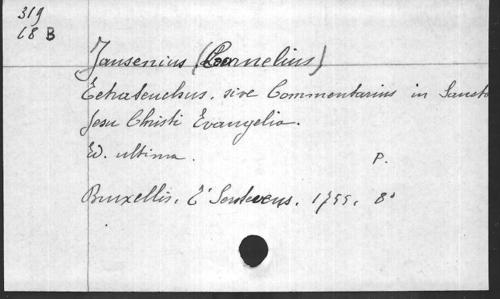 319
18 B
Jansenius (Cornelius)
Tetrateuchus, sive Commentarius in Sancta
Jesu Christi Evangelia.
Ed. ultima. P.
Bruxellis, t'Serstevens, 1755, 8°